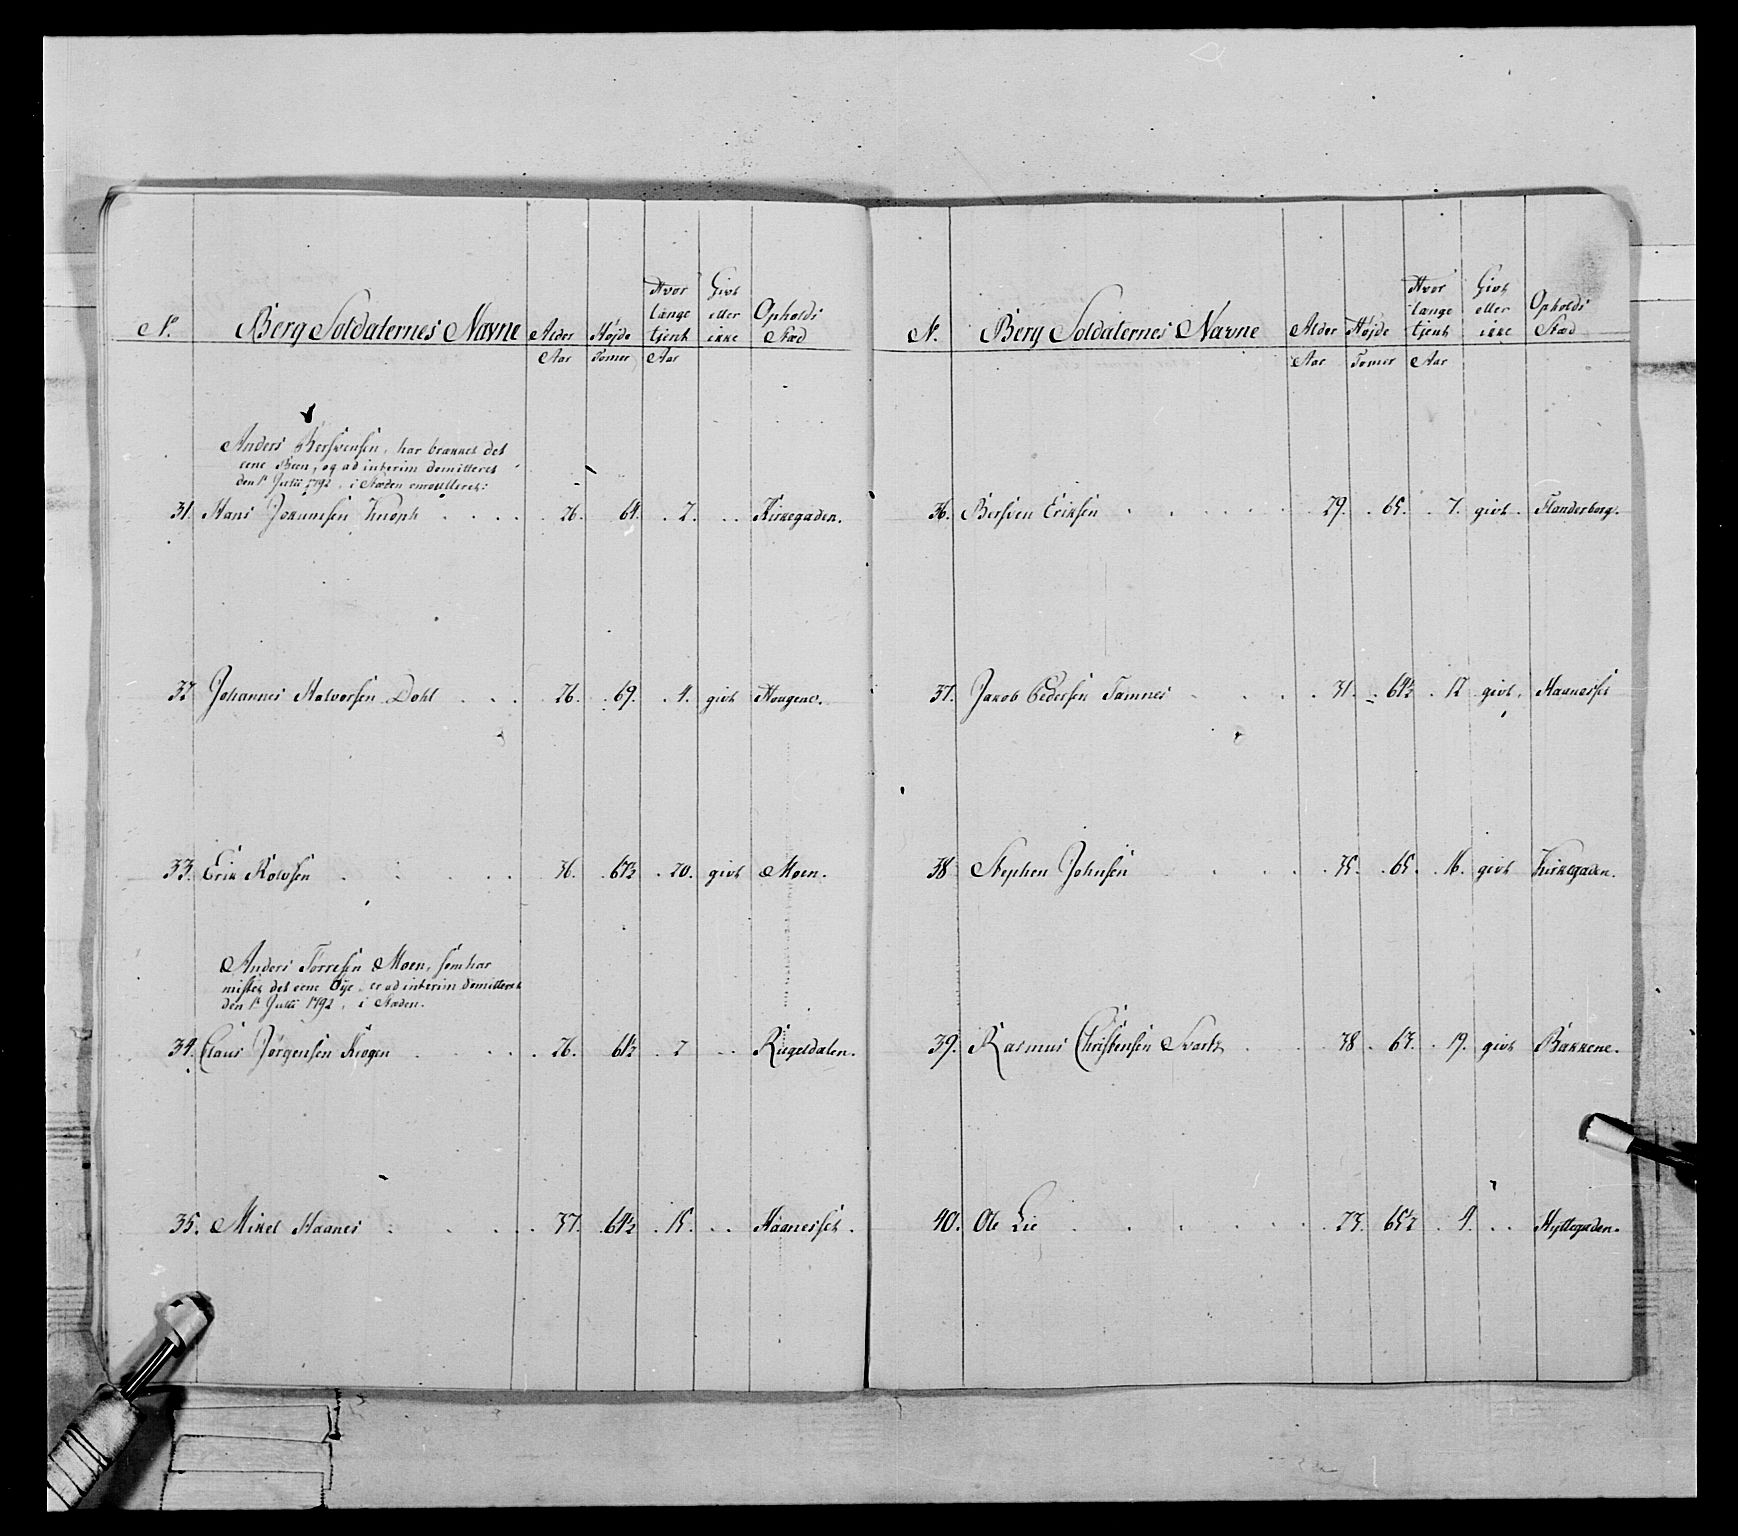 No. Berg Soldaternes Navne Alder Højde Hvor længe tjent Givt eller ikke Opholds Stæd
Aar Tomer Aar
Anders Bersvensen, har brækket det
eene Been, og ad interim demitteret
den 1e Julii 1792, i Stæden enroulleret:
31. Hans Jokumsen Knoph . . . . 26. 64. . 2. . . Kirkegaden.
32 Johannes Halvorsen Dohl . . . 26. 69. . 4. givt Hougene.
33. Erik Rolvsen . . . . 36. 67½ . 20. givt Moen.
Anders Torresen Moen, som har
mistet det eene Øije, er ad interim demitteret
den 1e Julii 1792, i Stæden.
34. Claus Jørgensen Krogen . . . . 26. 61½ . 2 . . Riigeldalen.
35. Mikel Haanes . . . . 37. 64½ . 15. . . Haanesset.
N. Berg Soldaternes Navne Alder Højde Hvor længe tjent Givt eller ikke Opholds Stæd
Aar Tomer Aar
36. Bersven Eriksen . . . . 29. . 65. . 7. givt. Flanderborg.
37. Jakob Pedersen Tamnes . . . . 31. . 64½ . 12 givt. Haanesset
38 Stephen Johnsen . . . . 35. . 65. . 16. givt Kirkegaden.
39. Rasmus Christensen Svartz . . . 38 . 63. . 19. givt Bakkene.
40. Ole Lie . . . . 23. 65½ . 4. . . Hyttegaden.